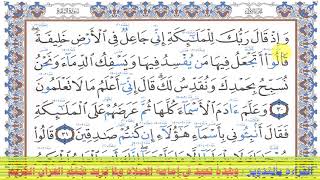 وَإِذْ قَالَ رَبُّكَ لِلْمَلَٰٓئِكَةِ إِنِّي جَاعِلٌ فِي ٱلْأَرْضِ خَلِيفَةً
قَالُوٓا۟ أَتَجْعَلُ فِيهَا مَن يُفْسِدُ فِيهَا وَيَسْفِكُ ٱلدِّمَآءَ وَنَحْنُ
نُسَبِّحُ بِحَمْدِكَ وَنُقَدِّسُ لَكَ قَالَ إِنِّيٓ أَعْلَمُ مَا لَا تَعْلَمُونَ
٣٠ وَعَلَّمَ ءَادَمَ ٱلْأَسْمَآءَ كُلَّهَا ثُمَّ عَرَضَهُمْ عَلَى ٱلْمَلَٰٓئِكَةِ
فَقَالَ أَنۢبِـُٔونِي بِأَسْمَآءِ هَٰٓؤُلَآءِ إِن كُنتُمْ صَٰدِقِينَ ٣١ قَالُوا۟
القراءة بالتدوير مفيدة في إمامة الصلاة ولا لحفظ القرآن الكريم